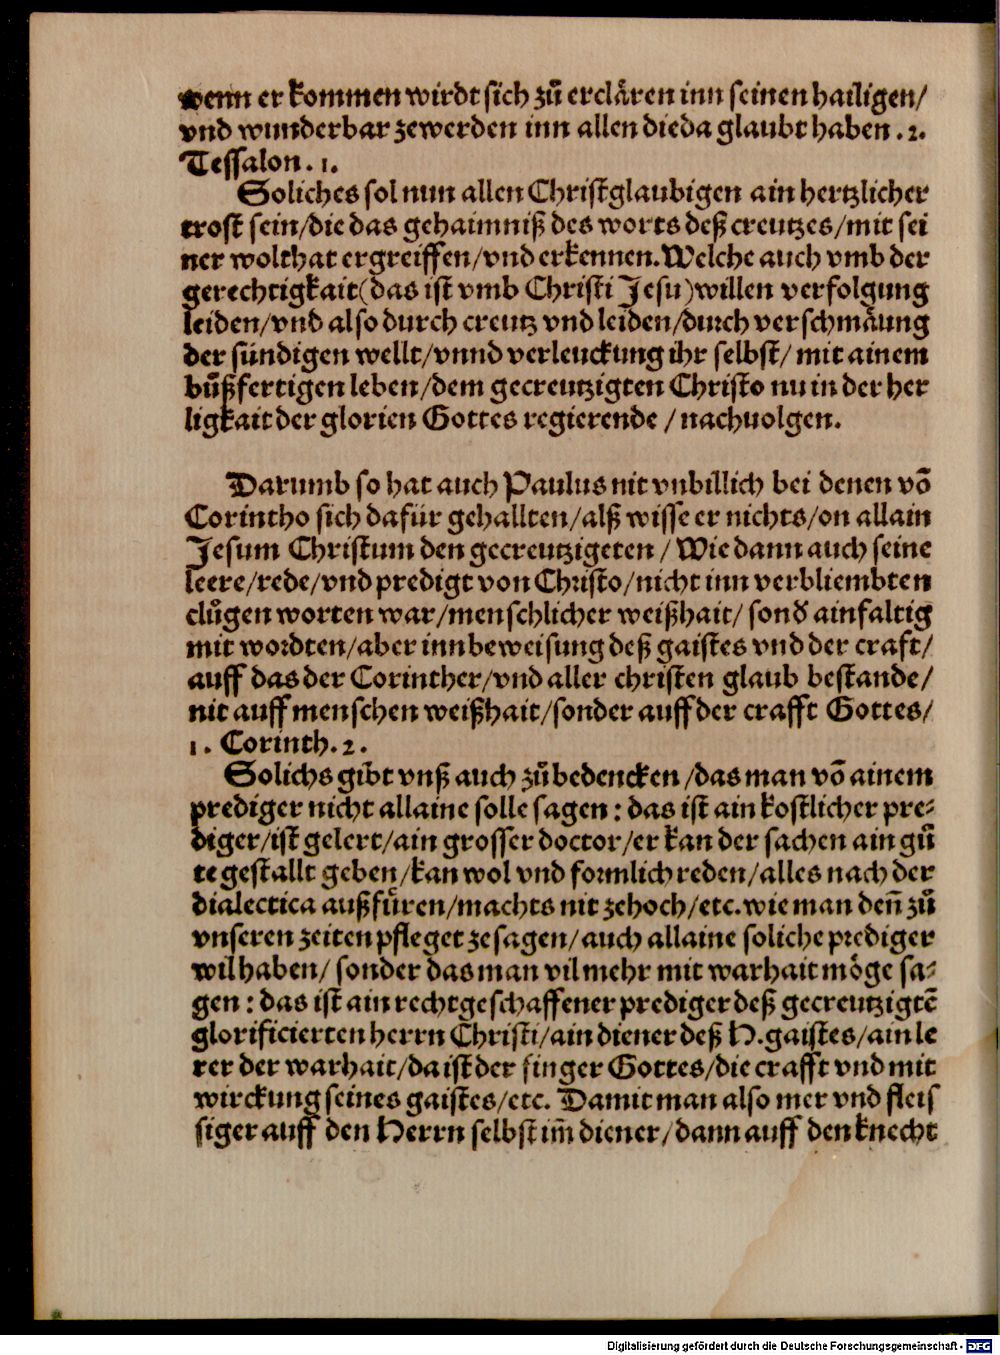 wenn er kommen wirdt sich zů erclären inn seinen hailigen/
vnd wunderbar zewerden inn allen die da glaubt haben .2.
Tessalon. 1.
Soliches sol nun allen Christglaubigen ain hertzlicher
trost sein/die das gehaimniß des worts deß creutzes/mit sei
ner wolthat ergreiffen/vnd erkennen. Welche auch vmb der
gerechtigkait(das ist vmb Christi Jesu)willen verfolgung
leiden/vnd also durch creutz vnd leiden/durch verschmäung
der sündigen wellt/vnnd verleuckung ihr selbst/ mit ainem
bůßfertigen leben/dem gecreutzigten Christo nu in der her
ligkait der glorien Gottes regierende /nachuolgen.
Darumb so hat auch Paulus nit vnbillich bei denen võ
Corintho sich dafür gehallten/alß wisse er nichts/on allain
Jesum Christum den gecreutzigeten / Wie dann auch seine
leere/rede/vnd predigt von Christo/nicht inn verbliembten
clůgen worten war/menschlicher weißhait/ sonď ainfaltig
mit wordten/aber inn beweisung deß gaistes vnd der craft/
auff das der Corinther/vnd aller christen glaub bestande/
nit auff menschen weißhait/sonder auff der crafft Gottes/
1. Corinth. 2.
Solichs gibt vnß auch zů bedencken /das man võ ainem
prediger nicht allaine solle sagen: das ist ain kostlicher pre⸗
diger/ist gelert/ain grosser doctor/er kan der sachen ain gů
te gestallt geben/kan wol vnd formlich reden/alles nach der
dialectica außfüren/machts nit zehoch/etc. wie man deñ zů
vnseren zeiten pfleget ze sagen/auch allaine soliche prediger
wil haben/ sonder das man vil mehr mit warhait möge sa⸗
gen: das ist ain rechtgeschaffener prediger deß gecreutzigtẽ
glorificierten herrn Christi/ain diener deß H. gaistes/ain le
rer der warhait/da ist der finger Gottes/die crafft vnd mit
wirckung seines gaistes/etc. Damit man also mer vnd fleis
siger auff den Herrn selbst im̃ diener/dann auff den knecht
Digitalisierung gefördert durch die Deutsche Forschungsgemeinschaft - DFG